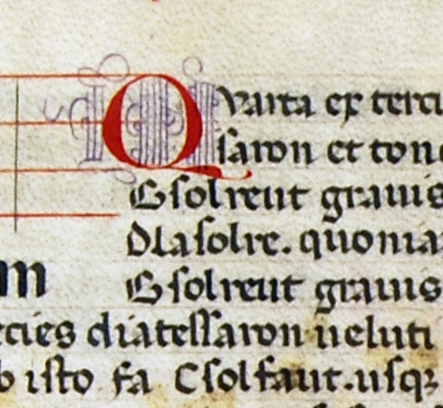 Quarta ex terci
saron et tono
Gsolreut grauis
Dlasolre. quonia
m
Gsolreut grauis
ecies diatessaron ueluti
b isto fa Csolfaut. usq3